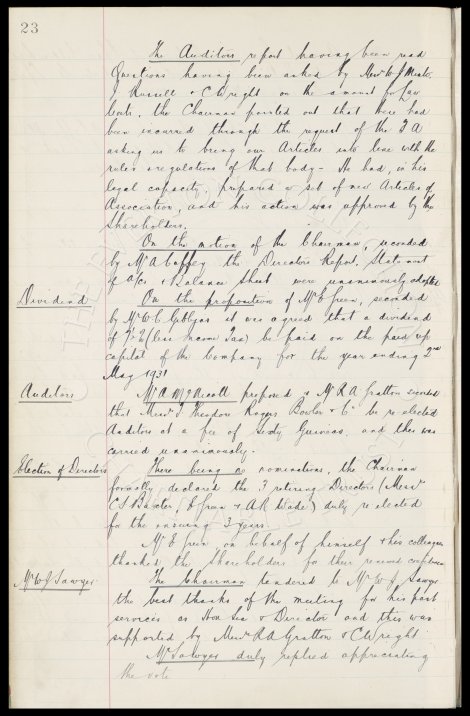 23
The Auditors report having been read
Questions having been asked by Messrs W J
J Russell & C Wright on the amount for Law
Costs, the Chairman pointed out that these had
been incurred through the request of the F A
asking us to bring our Articles into line with the
rules & regulations of that body - He had, in his
legal capacity, prepared a set of new Articles of
Association, and his action was approved by the
Shareholders.
On the motion of the Chairman, seconded
by Mr A Caffey the Directors Report, Statement
of a/cs & Balance Sheet were unanimously adopted
Dividend
On the proposition of Mr E Green, seconded
by Mr W C it was agreed that a dividend
of (less Income Tax) be paid on the paid up
capital of the Company for the year ending 2nd
May 1931
Auditors
Mr A proposed & Mr R A Gratton seconded
that Messrs Theodore Rogers Bowler & Co be re-elected
Auditors at a fee of Sixty Guineas, and this was
carried unanimously.
Election of Directors
There being no nominations, the Chairman
formally declared the 3 retiring Directors (Messrs
C S Baxter, E Green & A R Wade) duly re elected
for the ensuing 3 years
Mr E Green on behalf of himself & his colleagues
thanked the Shareholders for their renewed confidence
Mr W J Sawyer
The Chairman tendered to Mr W J Sawyer
the best thanks of the meeting for his past
services as Hon Sec & Director and this was
supported by Messrs R A Gratton & C Wright
Mr Sawyer duly replied appreciating
the vote